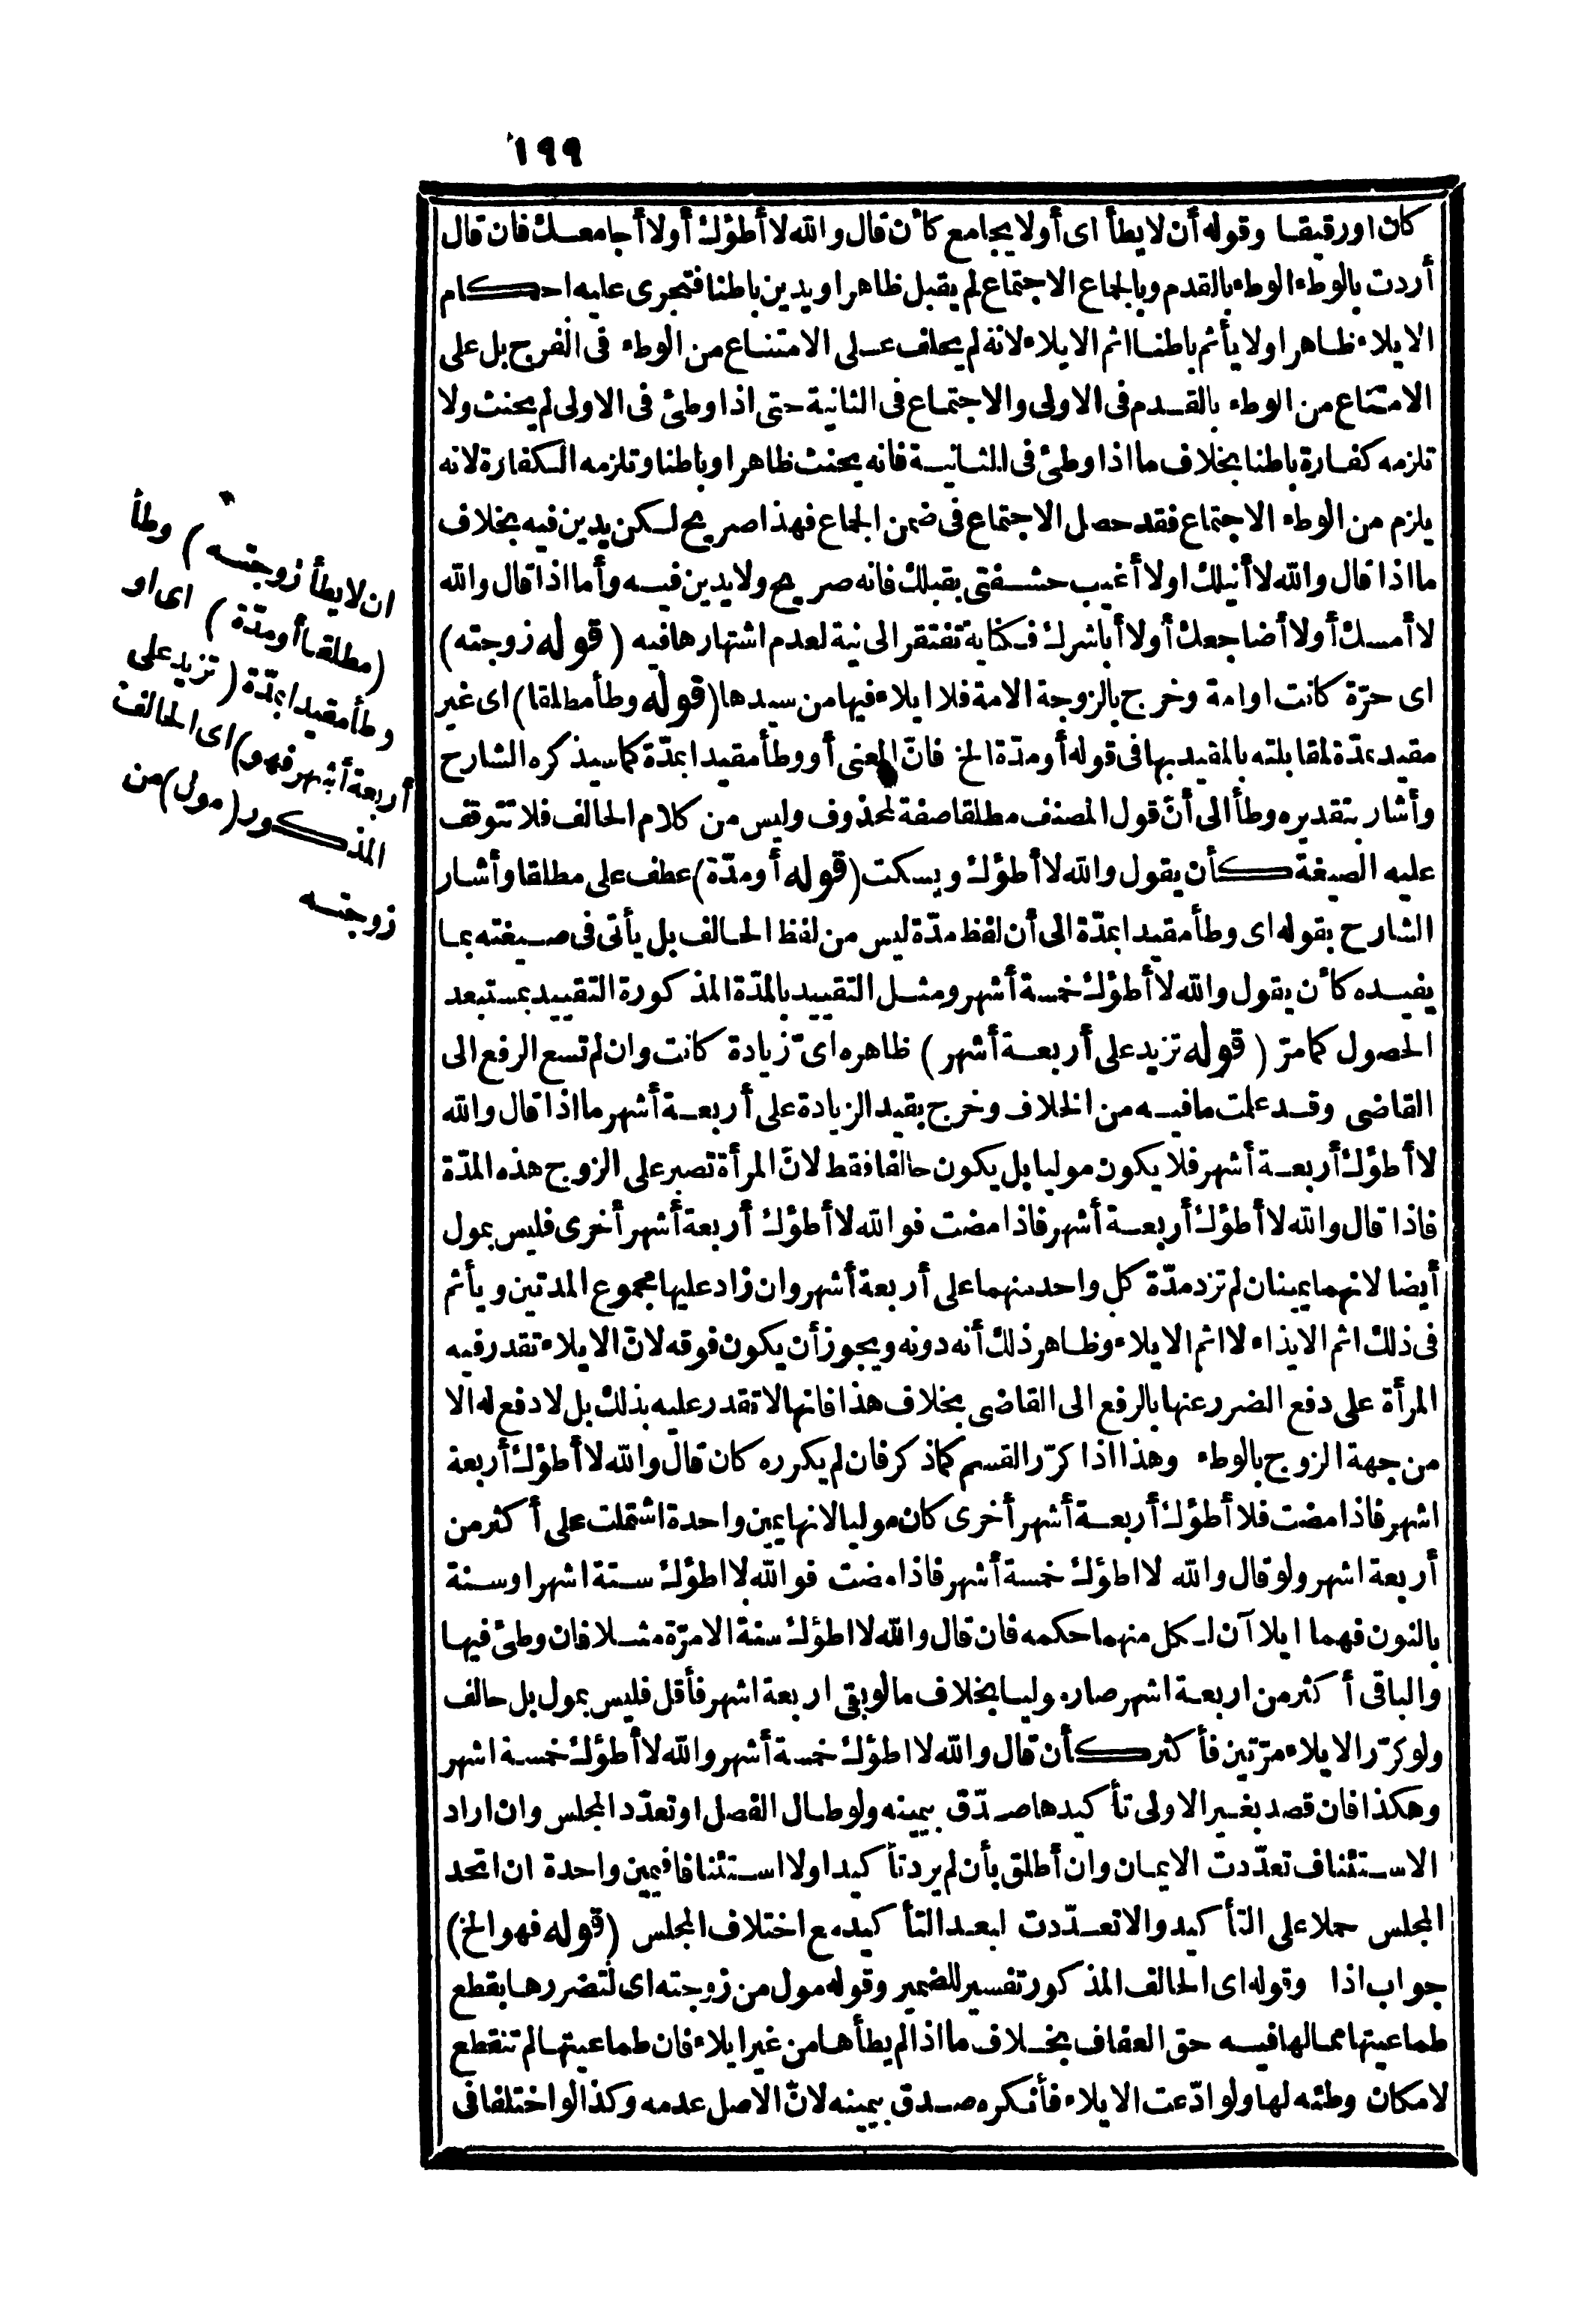 ١٩٩
كان اورقيقا وقوله أن لا يطأ اى أو لا يجامع كأن قال والله لا أطؤك أو لا أجامعك فان قال
أردت بالوطء الوطء بالقدم وبالجماع الاجتماع لم يقبل ظاهرا ويدين باطنا فتجرى عليه احكام
الايلاء ظاهرا ولا يأثم باطنا اثم الايلاء لانه لم يحلف على الامتناع من الوطء فى الفرج بل على
الامتناع من الوطء بالقدم فى الاولى والاجتماع فى الثانية حتى اذا وطئ فى الاولى لم يحنث ولا
تلزمه كفارة باطنا بخلاف ما اذا وطئ فى الثانية فانه يحنث ظاهرا وباطنا وتلزمه الكفارة لانه
يلزم من الوطء الاجتماع فقد حصل الاجتماع فى ضمن الجماع فهذا صريح لكن يدين فيه بخلاف
ما اذا قال والله لا أنيلك او لا أغيب حشفتى بقبلك فانه صريح ولا يدين فيه وأما اذا قال والله
لا أمسك أو لا أضاجعك أو لا أباشرك فكناية تفتقر الى نية لعدم اشتهارها فيه (قوله زوجته)
اى حرّة كانت او امة وخرج بالزوجة الامة فلا ايلاء فيها من سيدها (قوله وطأ مطلقا) اى غير
مقيد بمدّة لمقابلته بالمقيد بها فى قوله أو مدّة الخ فانّ المعنى أو وطأ مقيدا بمدّة كما سيذكره الشارح
وأشار بتقديره وطأ الى أنّ قول المصنف مطلقا صفة لمحذوف وليس من كلام الحالف فلا تتوقف
عليه الصيغة كأن يقول والله لا أطؤك ويسكت (قوله أو مدّة) عطف على مطلقا وأشار
الشارح بقوله اى وطأ مقيدا بمدّة الى أن لفظ مدّة ليس من لفظ الحالف بل يأتى فى صيغته بما
يفيده كأن يقول والله لا أطؤك خمسة أشهر ومثل التقييد بالمدّة المذكورة التقييد بمستبعد
الحصول كما مرّ (قوله تزيد على أربعة أشهر) ظاهره اىّ زيادة كانت وان لم تسع الرفع الى
القاضى وقد علمت ما فيه من الخلاف وخرج بقيد الزيادة على أربعة أشهر ما اذا قال والله
لا أطؤك أربعة أشهر فلا يكون موليا بل يكون حالفا فقط لانّ المرأة تصبر على الزوج هذه المدّة
فاذا قال والله لا أطؤك أربعة أشهر فاذا مضت فو الله لا أطؤك أربعة أشهر أخرى فليس بمول
أيضا لانهما يمينان لم تزد مدّة كل واحد منهما على أربعة أشهر وان زاد عليها مجموع المدتين ويأثم
فى ذلك اثم الايذاء لا اثم الايلاء وظاهر ذلك أنه دونه ويجوز أن يكون فوقه لانّ الايلاء تقدر فيه
المرأة على دفع الضرر عنها بالرفع الى القاضى بخلاف هذا فانها لا تقدر عليه بذلك بل لا دفع له الا
من جهة الزوج بالوطء وهذا اذا كرّر القسم كما ذكر فان لم يكرره كان قال والله لا أطؤك أربعة
اشهر فاذا مضت فلا أطؤك أربعة أشهر أخرى كان موليا لانها يمين واحدة اشتملت على أكثر من
أربعة اشهر ولو قال والله لا اطؤك خمسة أشهر فاذا مضت فو الله لا اطؤك ستة اشهر او سنة
بالنون فهما ايلاآن لكل منهما حكمه فان قال والله لا اطؤك سنة الا مرّة مثلا فان وطئ فيها
والباقى أكثر من اربعة اشهر صار موليا بخلاف ما لو بقى اربعة اشهر فأقل فليس بمول بل حالف
ولو كرّر الايلاء مرّتين فأكثر كأن قال والله لا اطؤك خمسة أشهر والله لا أطؤك خمسة اشهر
وهكذا فان قصد بغير الاولى تأكيدها صدّق بيمينه ولو طال الفصل او تعدّد المجلس وان اراد
الاستئناف تعدّدت الايمان وان أطلق بأن لم يرد تأكيدا ولا استئنافا فيمين واحدة ان اتحد
المجلس حملا على التأكيد والا تعدّدت لبعد التأكيد مع اختلاف المجلس (قوله فهو الخ)
جواب اذا وقوله اى الحالف المذكور تفسير للضمير وقوله مول من زوجته اى لتضررها بقطع
طماعيتها مما لها فيه حق العفاف بخلاف ما اذا لم يطأها من غير ايلاء فان طماعيتها لم تنقطع
لامكان وطئه لها ولو ادّعت الايلاء فأنكره صدق بيمينه لانّ الاصل عدمه وكذا لو اختلفا فى
ان لا يطأ زوجته) وطأ
(مطلقا أو مدّة) اى او
وطأ مقيدا بمدّة (تزيد على
أربعة أشهر فهو) اى الحالف
المذكور (مول) من
زوجته